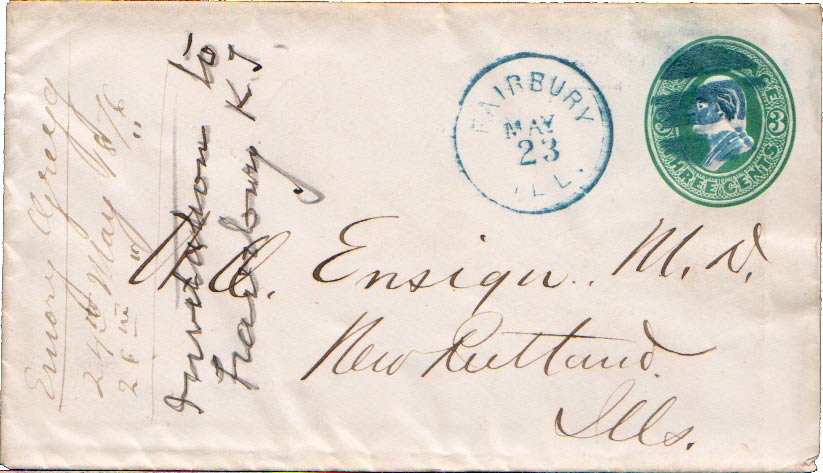 FAIRBURY
MAY
23
ILL.
THREE CENTS
3
Ensign. M.D.
New Rutland
Ills.
Invitation to
K.T.
Emory Gregg
24th May 1876
26 " "